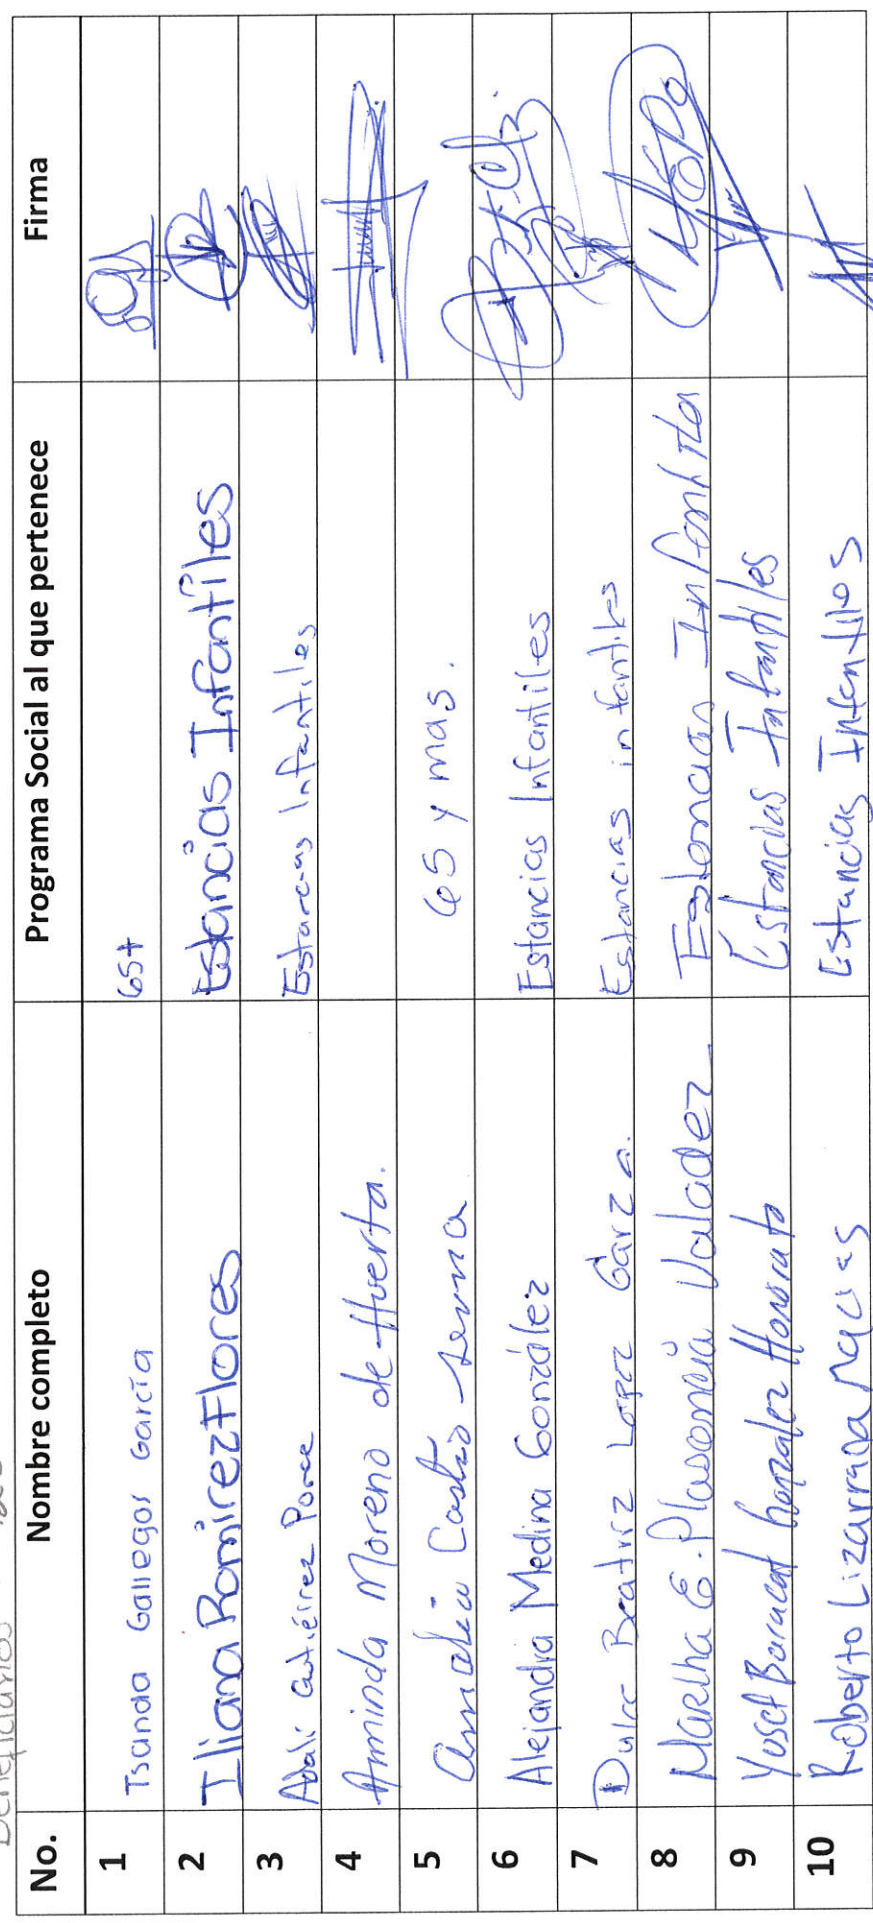 Beneficiarios
No. Nombre completo Programa Social al que pertenece Firma
1 Tsanda Gallegos García 65+
2 Iliana Ramirez Flores Estancias Infantiles
3 Adali Gutiérrez Ponce Estancias Infantiles
4 Aminda Moreno de Huerta.
5 Amalia Castro Serna 65 y mas.
6 Alejandra Medina González Estancias Infantiles
7 Dulce Beatriz Lopez Garza. Estancias infantiles
8 Martha E. Plascencia Valadez Estancias Infantiles
9 Yosef Baracat Gonzalez Honorato Estancias Infantiles
10 Roberto Lizarraga Macias Estancias Infantiles